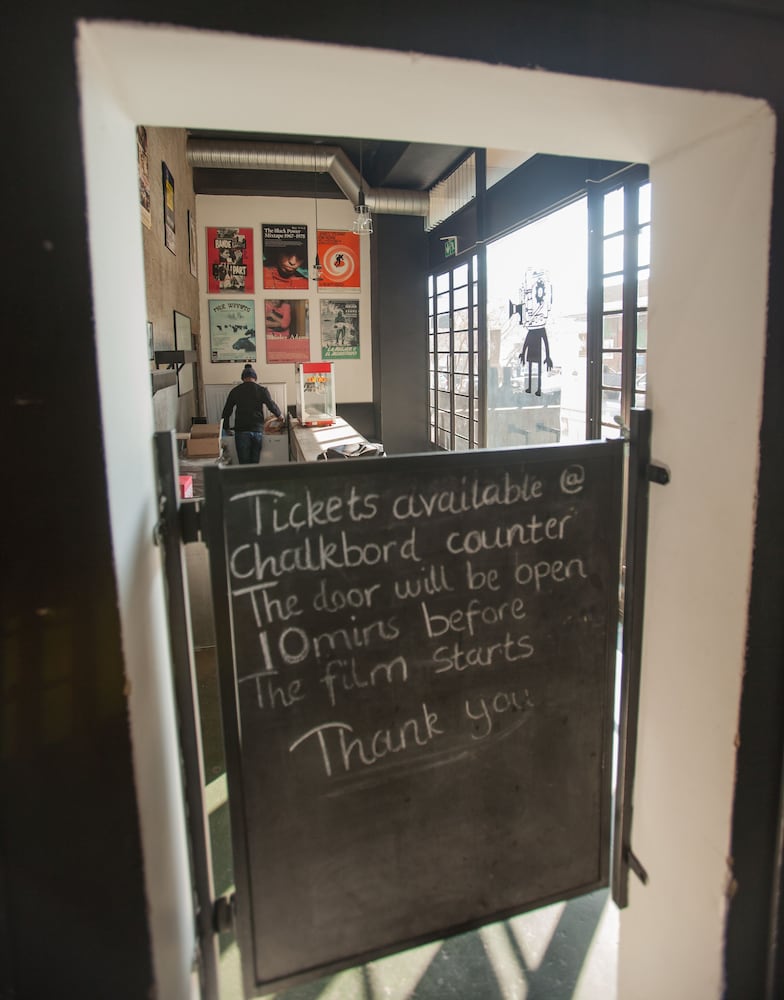 BANDE
À PART
The Black Power
Mixtape 1967-1975
Tickets available @
Chalkbord counter
The door will be open
10mins before
The film starts
Thank you